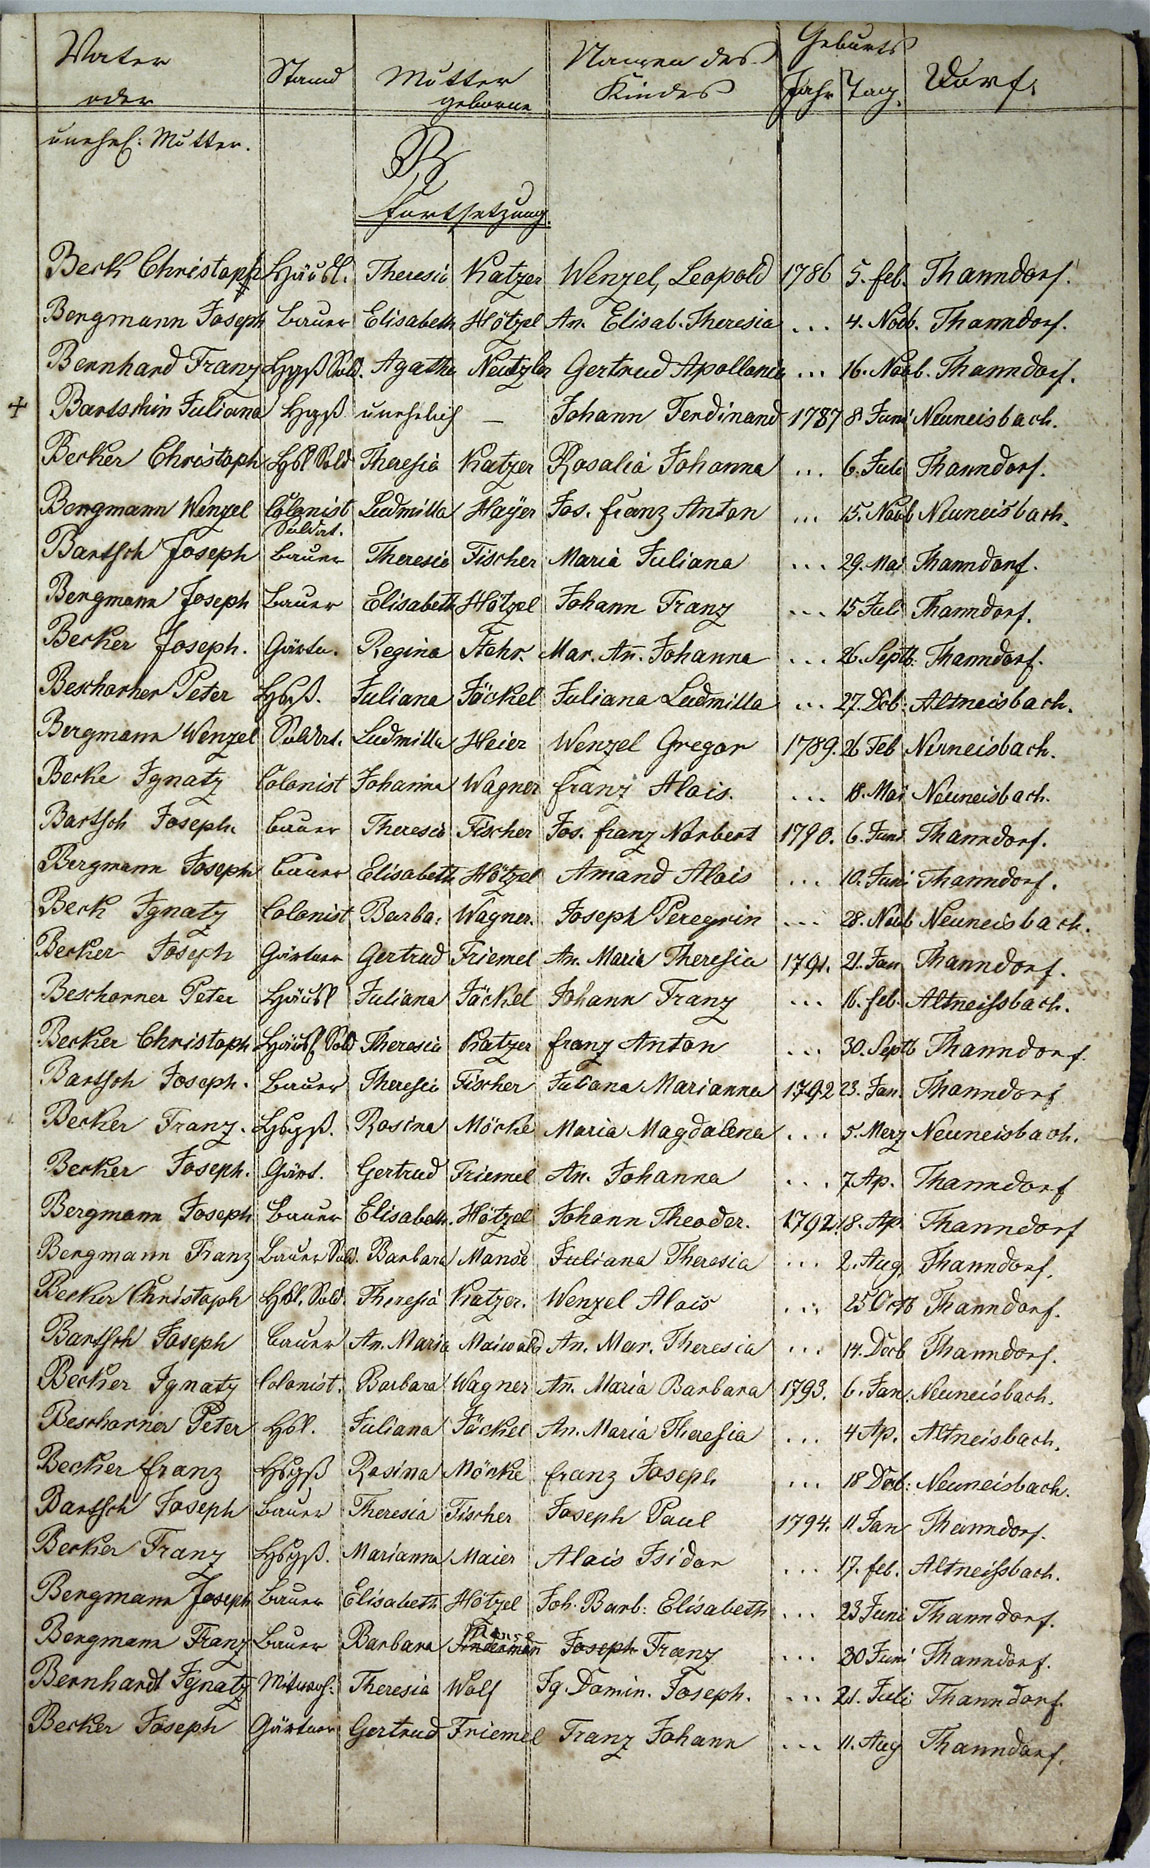 Vater Stand Mutter Namen des Geburts Dorf.
oder geborne Kindes Jahr Tag.
unehl: Mutter.
B
Fortsetzung.
Beck Christoph Häusl. Theresia Katzer Wenzel, Leopold 1786 5. feb. Thanndorf.
Bergmann Joseph Bauer Elisabeth Hötzel An. Elisab. Theresia ... 4. Novb. Thanndorf.
Bernhard Franz Hgß Sold. Agatha Neutzler Gertrud Apollonia ... 16. Novb. Thanndorf.
+ Bartschin Juliana Hgß unehelich — Johann Ferdinand 1787 8 Juni Neuneisbach.
Becker Christoph Hßl Sold Theresia Katzer Rosalia Johanna ... 6. Juli Thanndorf.
Bergmann Wenzel Colonist Soldat. Ludmilla Hayer Jos. franz Anton ... 15. Novb Neuneisbach.
Bartsch Joseph Bauer Theresia Fischer Maria Juliana ... 29. Mai Thanndorf.
Bergmann Joseph Bauer Elisabeth Hötzel Johann Franz ... 15 Juli Thanndorf.
Becker Joseph. Gärtn. Regina Stehr. Mar. An̄. Johanna ... 26. Septb. Thanndorf.
Beschorner Peter Hßgß. Juliana Jäckel Juliana Ludmilla ... 27. Dcb: Altneisbach.
Bergmann Wenzel Soldat. Ludmilla Heier Wenzel Gregor 1789. 26 Feb Neuneisbach.
Becke Ignatz Colonist Johanna Wagner franz Alois. ... 18. Mai Neuneisbach.
Bartsch Joseph. Bauer Theresia Fischer Jos. franz Norbert 1790. 6. Juni Thanndorf.
Bergmann Joseph Bauer Elisabeth Hötzel Amand Alois ... 10. Juni Thanndorf.
Beck Ignatz Colonist Barba: Wagner. Joseph Peregrin ... 28. Novb Neuneisbach.
Becker Joseph Gärtner Gertrud Friemel An. Maria Theresia 1791. 21. Jan Thanndorf.
Beschorner Peter Häusl Juliana Jäckel Johann Franz ... 16. feb. Altneissbach.
Becker Christoph Häusl Sold Theresia Katzer franz Anton ... 30. Septb Thanndorf
Bartsch Joseph. Bauer Theresia Fischer Juliana Marianna 1792 23. Jan. Thanndorf
Becker Franz. Hßgß. Rosina Möcke Maria Magdalena ... 5. Merz Neuneisbach.
Becker Joseph. Gärt. Gertrud Friemel An. Johanna ... 7 Ap. Thanndorf
Bergmann Joseph Bauer Elisabeth Hötzel Johann Theodor. 1792. 18. Ap. Thanndorf
Bergmann Franz Bauer Sold. Barbara Manse Juliana Theresia ... 2. Aug. Thanndorf.
Becker Christoph Hßl. Sold. Theresia Katzer. Wenzel Alois ... 25 Octb Thanndorf.
Bartsch Joseph Bauer An. Maria Maiwald An. Mar. Theresia ... 14. Decb Thanndorf.
Becker Ignatz Colonist. Barbara Wagner An̄. Maria Barbara 1793. 6. Jan. Neuneisbach.
Beschorner Peter Hßl. Juliana Jäckel An. Maria Theresia ... 4 Ap. Altneisbach.
Becker franz Hßgß Rosina Möcke franz Joseph ... 18 Dcb: Neuneisbach.
Bartsch Joseph Bauer Theresia Fischer Joseph Paul 1794. 11 Jan Thanndorf.
Becker Franz Hßgß. Marianna Maier Alois Isidor ... 17. feb. Altneissbach.
Bergmann Joseph Bauer Elisabeth Hötzel Joh. Barb: Elisabeth ... 23 Juni Thanndorf.
Bergmann Franz Bauer Barbara Manse Joseph Franz ... 30 Juni Thanndorf.
Bernhardt Ignatz Theresia Wolf Ig. Domin. Joseph. ... 21. Juli Thanndorf.
Becker Joseph Gärtner Gertrud Friemel Franz Johann ... 11. Aug Thanndorf.